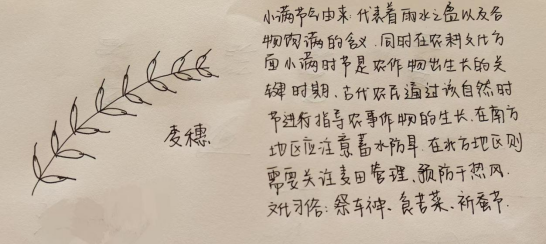 小满节气由来:代表着雨水之盈以及谷
物饱满的含义.同时在农耕文化方
面小满时节是农作物出生长的关
键时期.古代农民通过该自然时
节进行指导农事作物的生长.在南方
地区应注意蓄水防旱.在北方地区则
需要关注麦田管理、预防干热风.
文化习俗:祭车神、食苦菜、祈蚕节.
麦穗